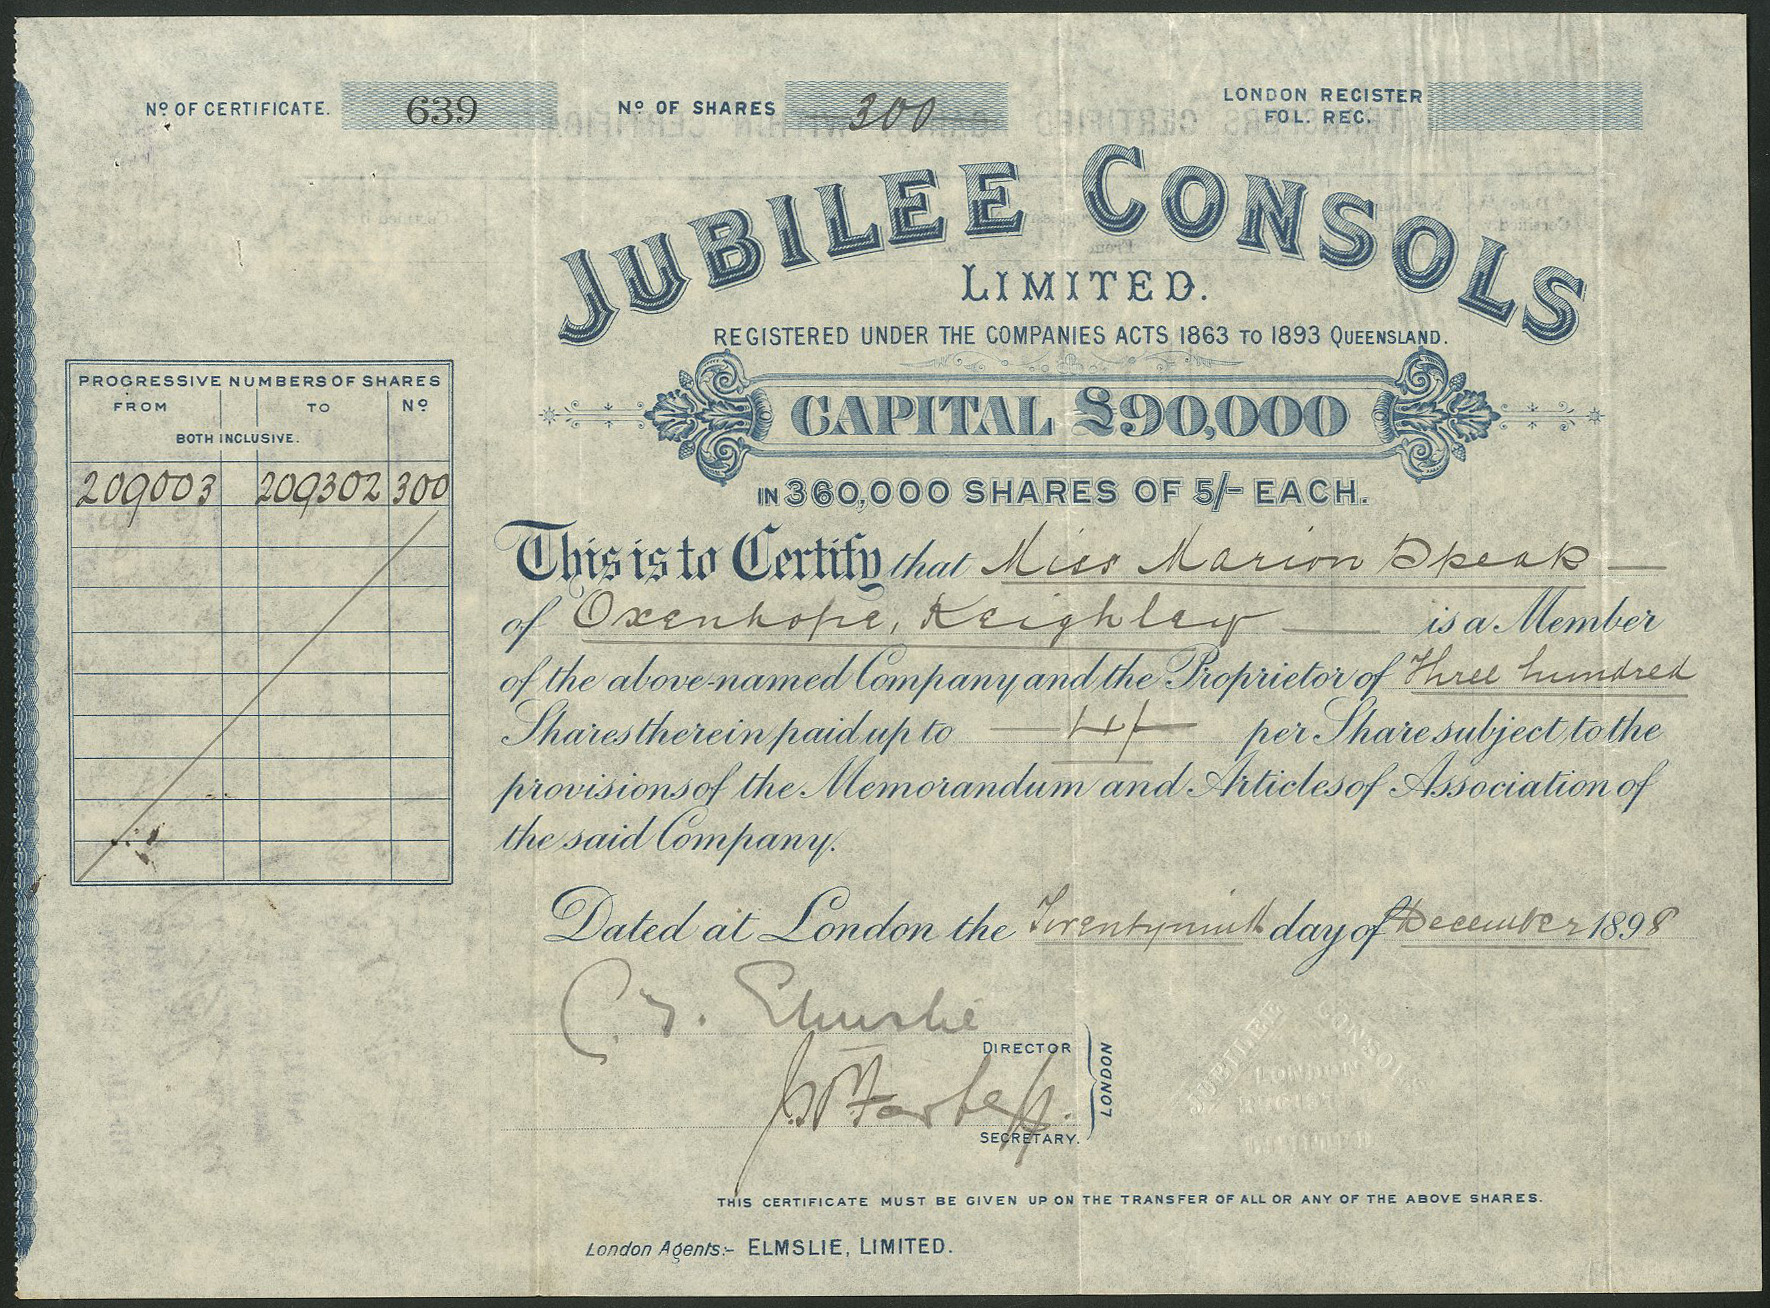 Nº OF CERTIFICATE. 639 Nº OF SHARES 300 LONDON REGISTER
FOL. REC.
JUBILEE CONSOLS
LIMITED.
REGISTERED UNDER THE COMPANIES ACTS 1863 TO 1893 QUEENSLAND.
CAPITAL £90,000
IN 360,000 SHARES OF 5/- EACH.
PROGRESSIVE NUMBERS OF SHARES
FROM TO Nº
BOTH INCLUSIVE.
209003 209302 300
This is to Certify that Miss Marion Speak
of Oxenhope, Keighley is a Member
of the above-named Company and the Proprietor of Three hundred
Shares therein paid up to 4/- per Share subject to the
provisions of the Memorandum and Articles of Association of
the said Company.
Dated at London the Twentyninth day of December 1898
Elmslie
DIRECTOR
SECRETARY.
LONDON
JUBILEE CONSOLS
LONDON
LIMITED
THIS CERTIFICATE MUST BE GIVEN UP ON THE TRANSFER OF ALL OR ANY OF THE ABOVE SHARES.
London Agents:- ELMSLIE, LIMITED.